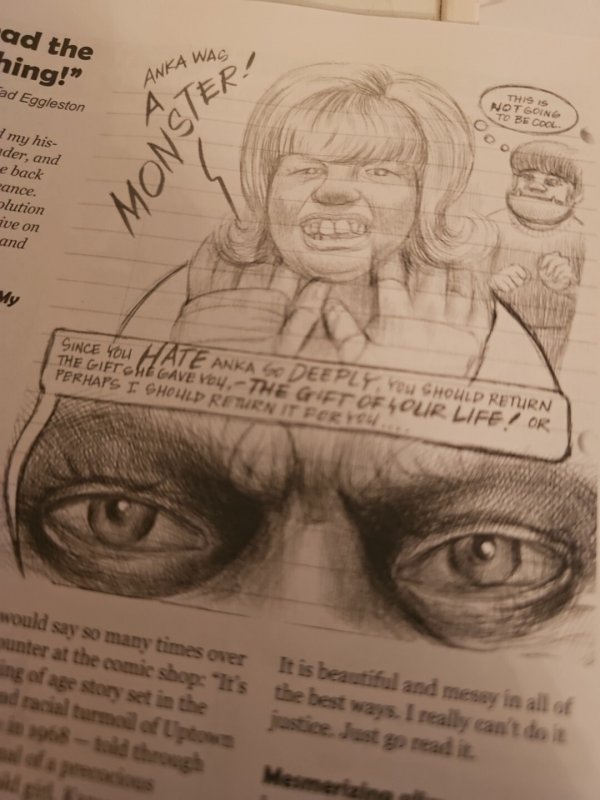 ad the
hing!"
Tad Eggleston
d my his-
nder, and
e back
ance.
olution
ive on
and
My
ANKA WAS
A
MONSTER!
THIS IS
NOT GOING
TO BE COOL.
SINCE YOU HATE ANKA SO DEEPLY, YOU SHOULD RETURN
THE GIFT SHE GAVE YOU, - THE GIFT OF YOUR LIFE! OR
PERHAPS I SHOULD RETURN IT FOR YOU....
would say so many times over
ounter at the comic shop: "It's
ing of age story set in the
nd racial turmoil of Uptown
in 1968 — told through
nal of a precocious
old girl,
It is beautiful and messy in all of
the best ways. I really can't do it
justice. Just go read it.
Mesmerizing